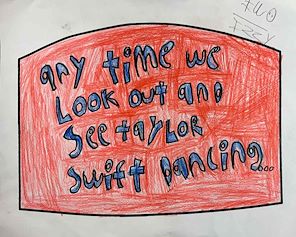 any time we
Look out and
See taylor
Swift Dancing...